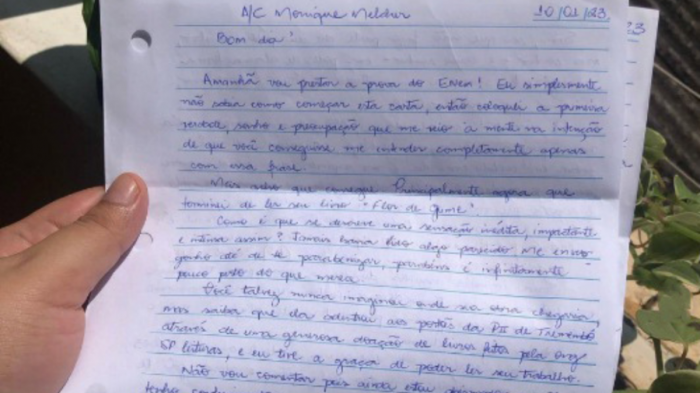 A/C Monique Malcher 10/01/23
23
Bom dia!
Amanhã vou prestar a prova do Enem! Eu simplesmente
não sabia como começar esta carta, então coloquei a primeira
sonho e preocupação que me veio à mente na intenção
de que você conseguisse me entender completamente apenas
com essa frase.
Mas acho que consegue. Principalmente agora que
terminei de ler seu livro "Flor de Gume".
Como é que se descreve uma sensação inédita, impactante
e íntima assim? Jamais havia lido algo parecido. Me
até de te parabenizar, parabéns é infinitamente
pouco perto do que merece.
Você talvez nunca imaginou onde sua obra chegaria,
mas saiba que ela adentrou aos portões da P2 de Tremembé
através de uma generosa doação de livros feitos pela ong
SP leituras, e eu tive a graça de poder ler seu trabalho.
Não vou comentar pois ainda estou
tenho